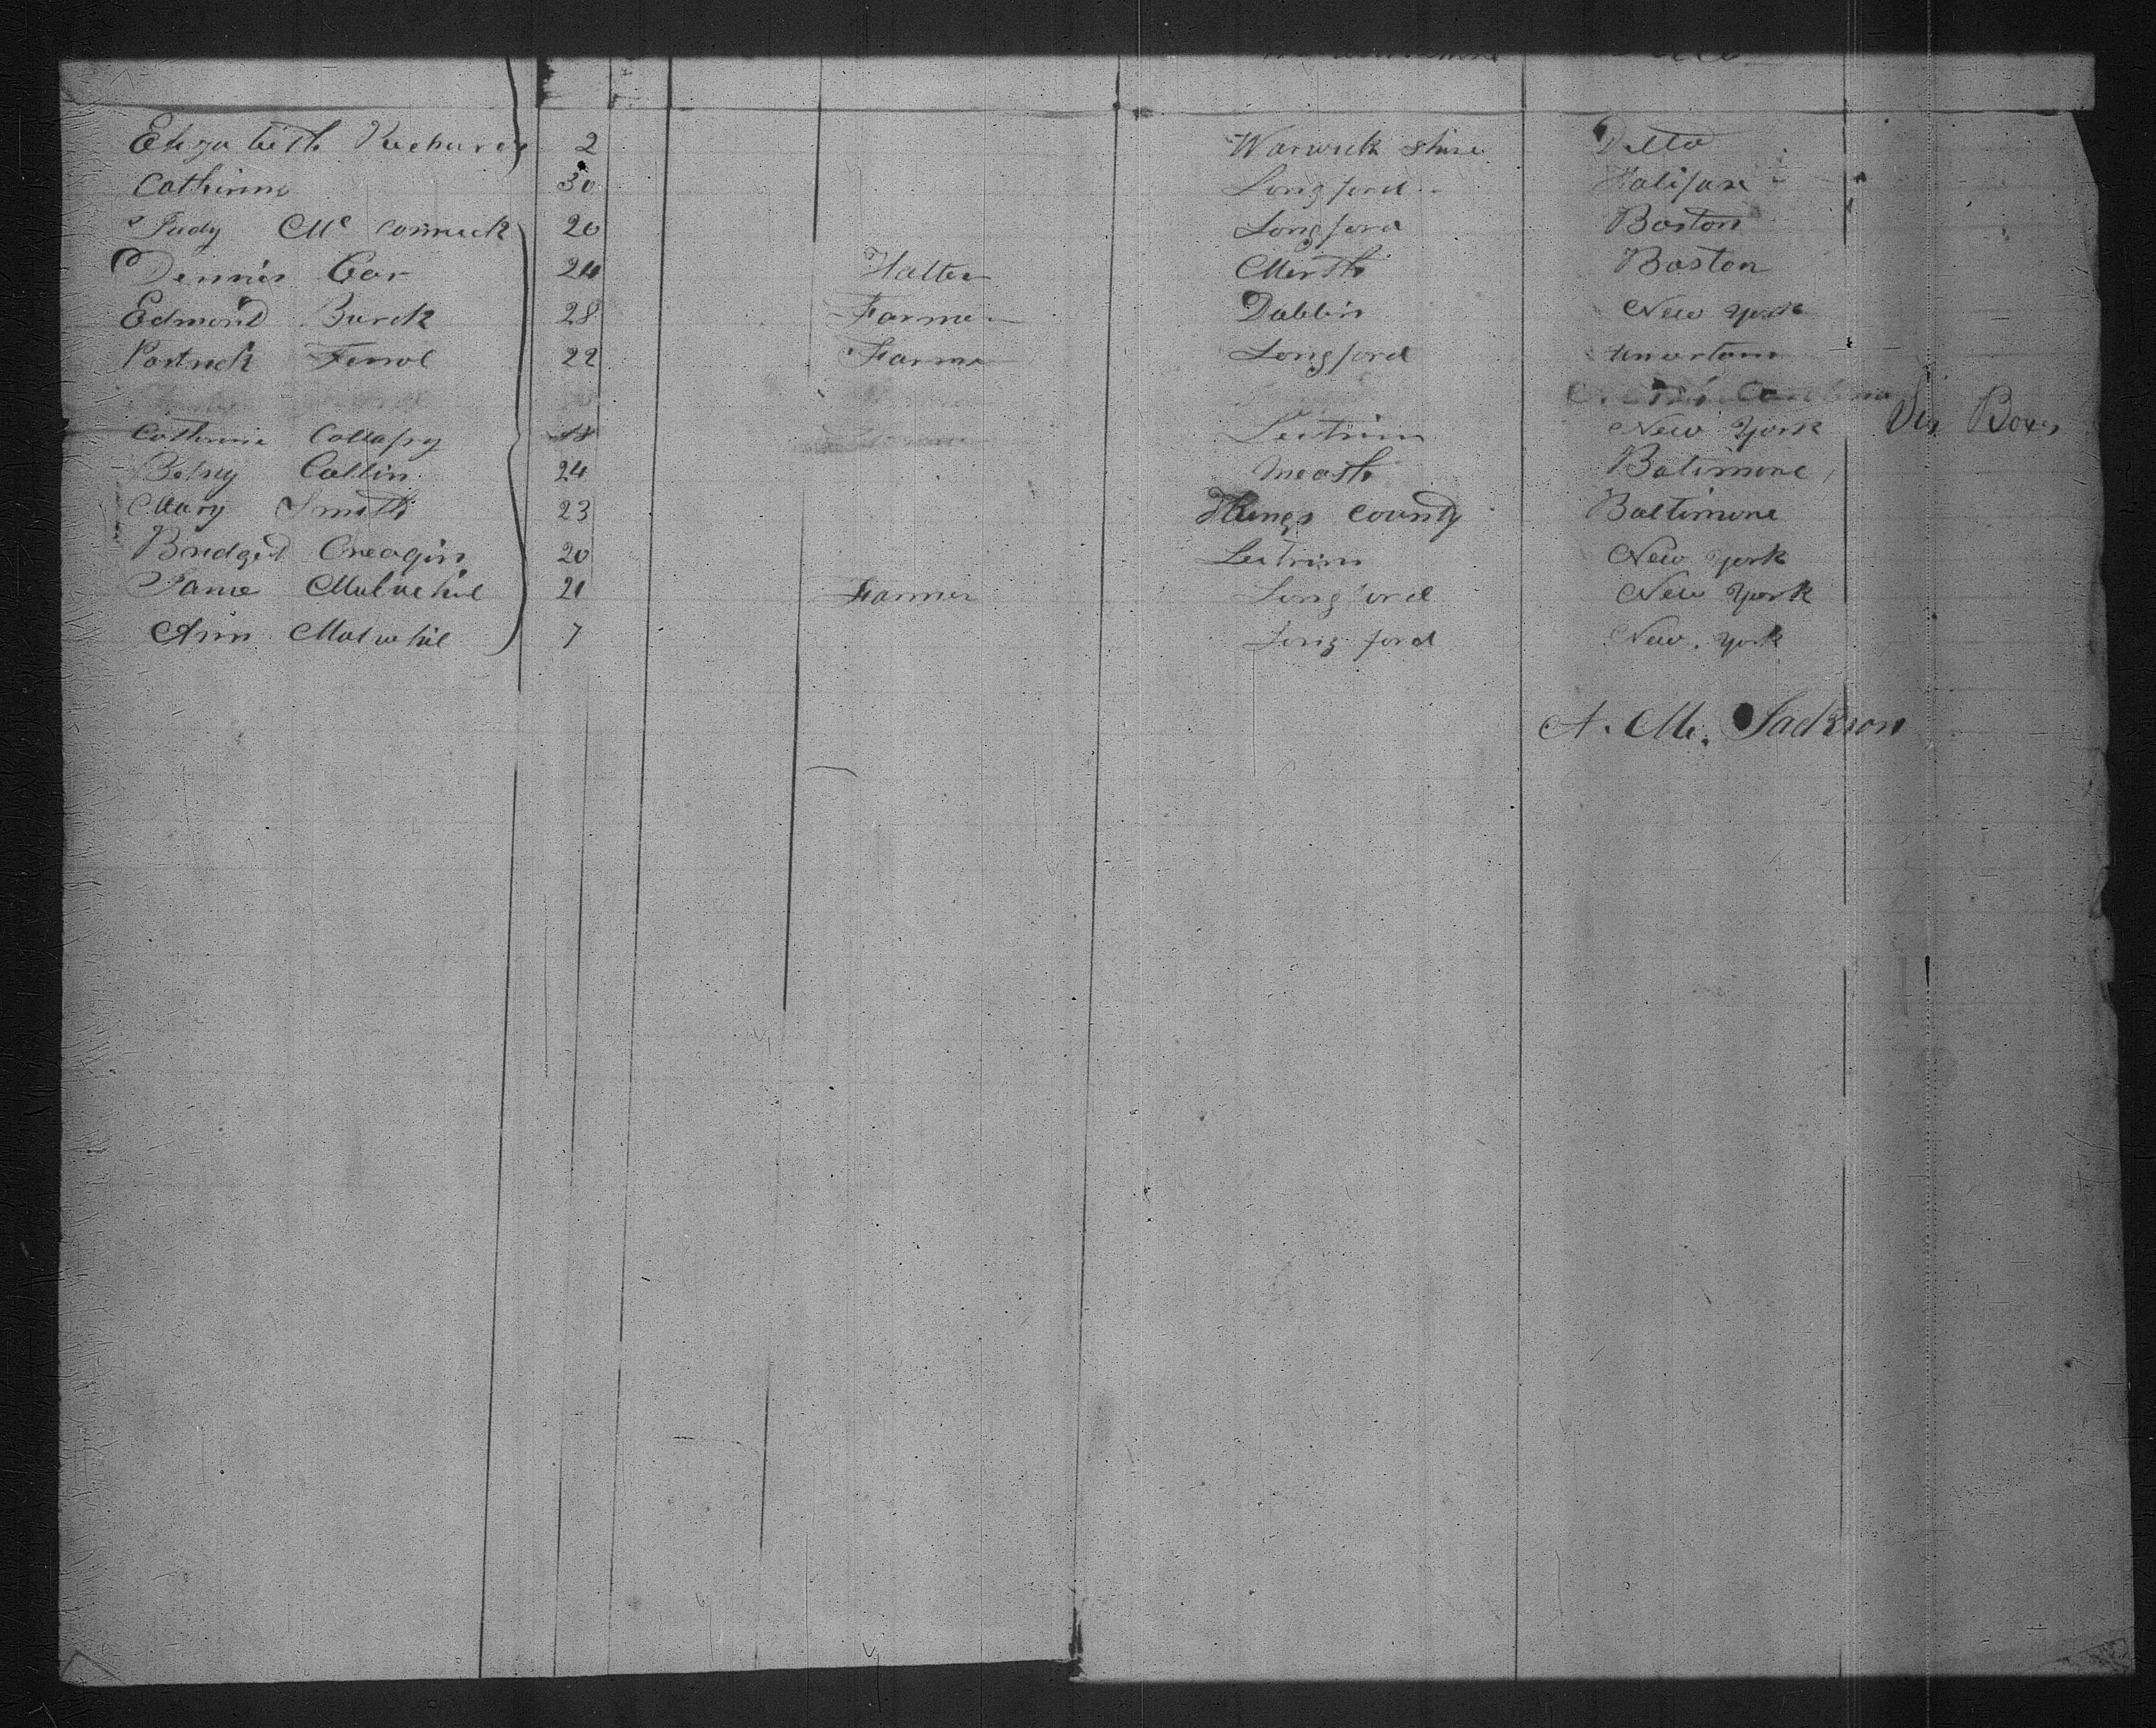 Elizabeth Richards 2 Warwick shire Ditto
Catherine 30 Longford Halifax
Judy Mc Cormick 20 Longford Boston
Dennis Car 24 Hatter Meath Boston
Edmond Burck 28 Farmer Dublin New York
Patrick Ferrol 22 Farmer Longford uncertain
Catherine 18 Leitrim New York Six Boxes
Betsy Callin 24 Meath Batimore
Mary Smith 23 Kings County Baltimore
Bridget Creagin 20 Leitrim New York
Jame Mulvehil 21 Farmer Longford New York
Ann Mulvehil 7 Longford New York
A. M. Jackson